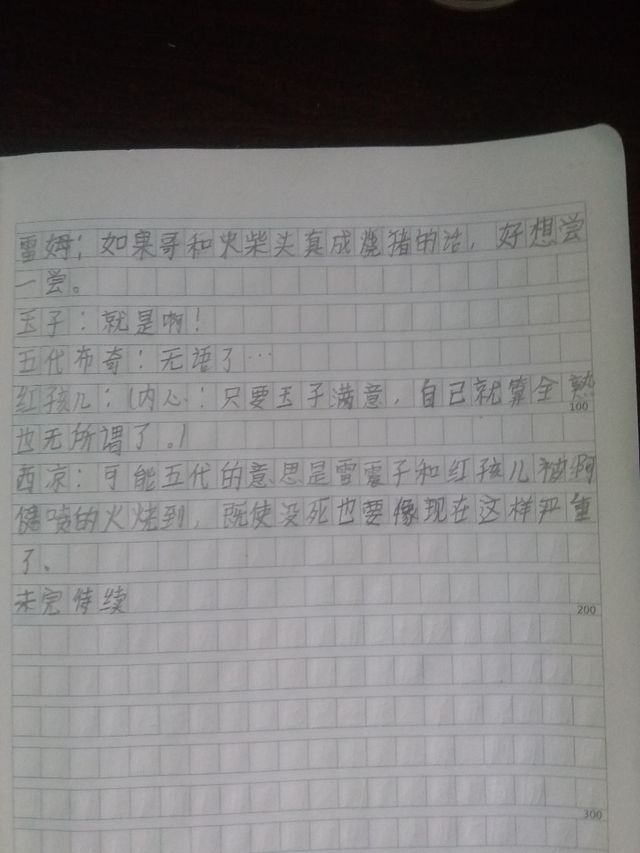 雷姆：如果哥和火柴头真成烧猪的话，好想尝
一尝。
玉子：就是啊！
五代布奇：无语了…
红孩儿：（内心：只要玉子满意，自己就算全熟
100
也无所谓了。）
西凉：可能五代的意思是雷震子和红孩儿被阿
健喷的火烧到，既使没死也要像现在这样严重
了。
未完待续
200
300